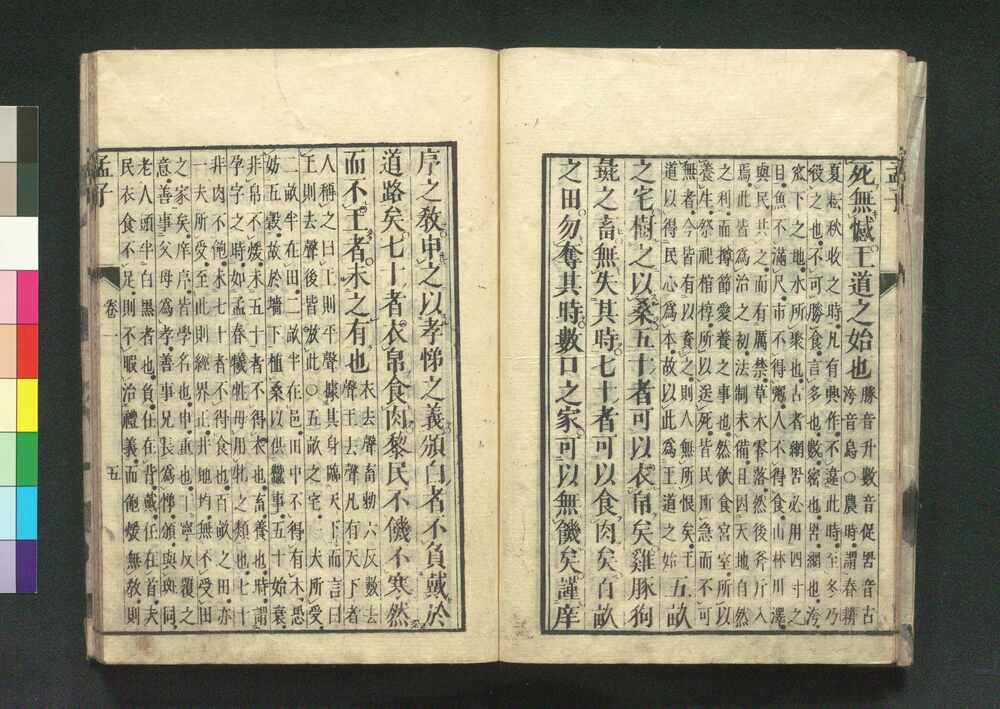 孟子
死無憾王道之始也
勝音升數音促罟音古
洿音烏○農時謂春耕
夏耘秋收之時凡有興作不違此時至冬乃
役之也不可勝食言多也數密也罟網也洿
窊下之地水所聚也古者網罟必用四寸之
目魚不滿尺市不得粥人不得食山林川澤
與民共之而有厲禁草木零落然後斧斤入
焉此皆爲治之初法制未備且因天地自然
之利而撙節愛養之事也然飲食宮室所以
養生祭祀棺椁所以送死皆民所急而不可
無者今皆有以資之則人無所恨矣王
道以得民心爲本故以此爲王道之始
五畝
之宅樹之以桑五十者可以衣帛矣雞豚狗
彘之畜無失其時七十者可以食肉矣百畝
之田勿奪其時數口之家可以無饑矣謹庠
序之教申之以孝悌之義頒白者不負戴於
道路矣七十者衣帛食肉黎民不饑不寒然
而不王者未之有也
衣去聲畜勅六反數去
聲王去聲凡有天下者
人稱之曰王則平聲據其身臨天下而言曰
王則去聲後皆倣此○五畝之宅一夫所受
二畝半在田二畝半在邑田中不得有木恐
妨五穀故於墻下植桑以供蠶事五十始衰
非帛不煖未五十者不得衣也畜養也時謂
孕字之時如孟春犧牲毋用牝之類也七十
非肉不飽未七十者不得食也百畝之田亦
一夫所受至此則經界正井地均無不受田
之家矣庠序皆學名也申重也丁寧反覆之
意善事父母爲孝善事兄長爲悌頒與斑同
老人頭半白黑者也負任在背戴任在首夫
民衣食不足則不暇治禮義而飽煖無教則
孟子
卷一
五